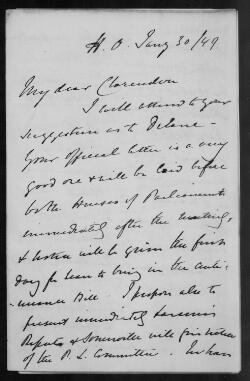 H. O. Jany 30/49
My dear Clarendon
I will attend to your
suggestion as to Delane -
Your official letter is a very
good one & will be laid before
both Houses of Parliament
immediately after the meeting,
& notice will be given the first
day for leave to bring in the conti-
-nuance Bill. I propose also to
present immediately
Reports &
of the P. L. Committee.